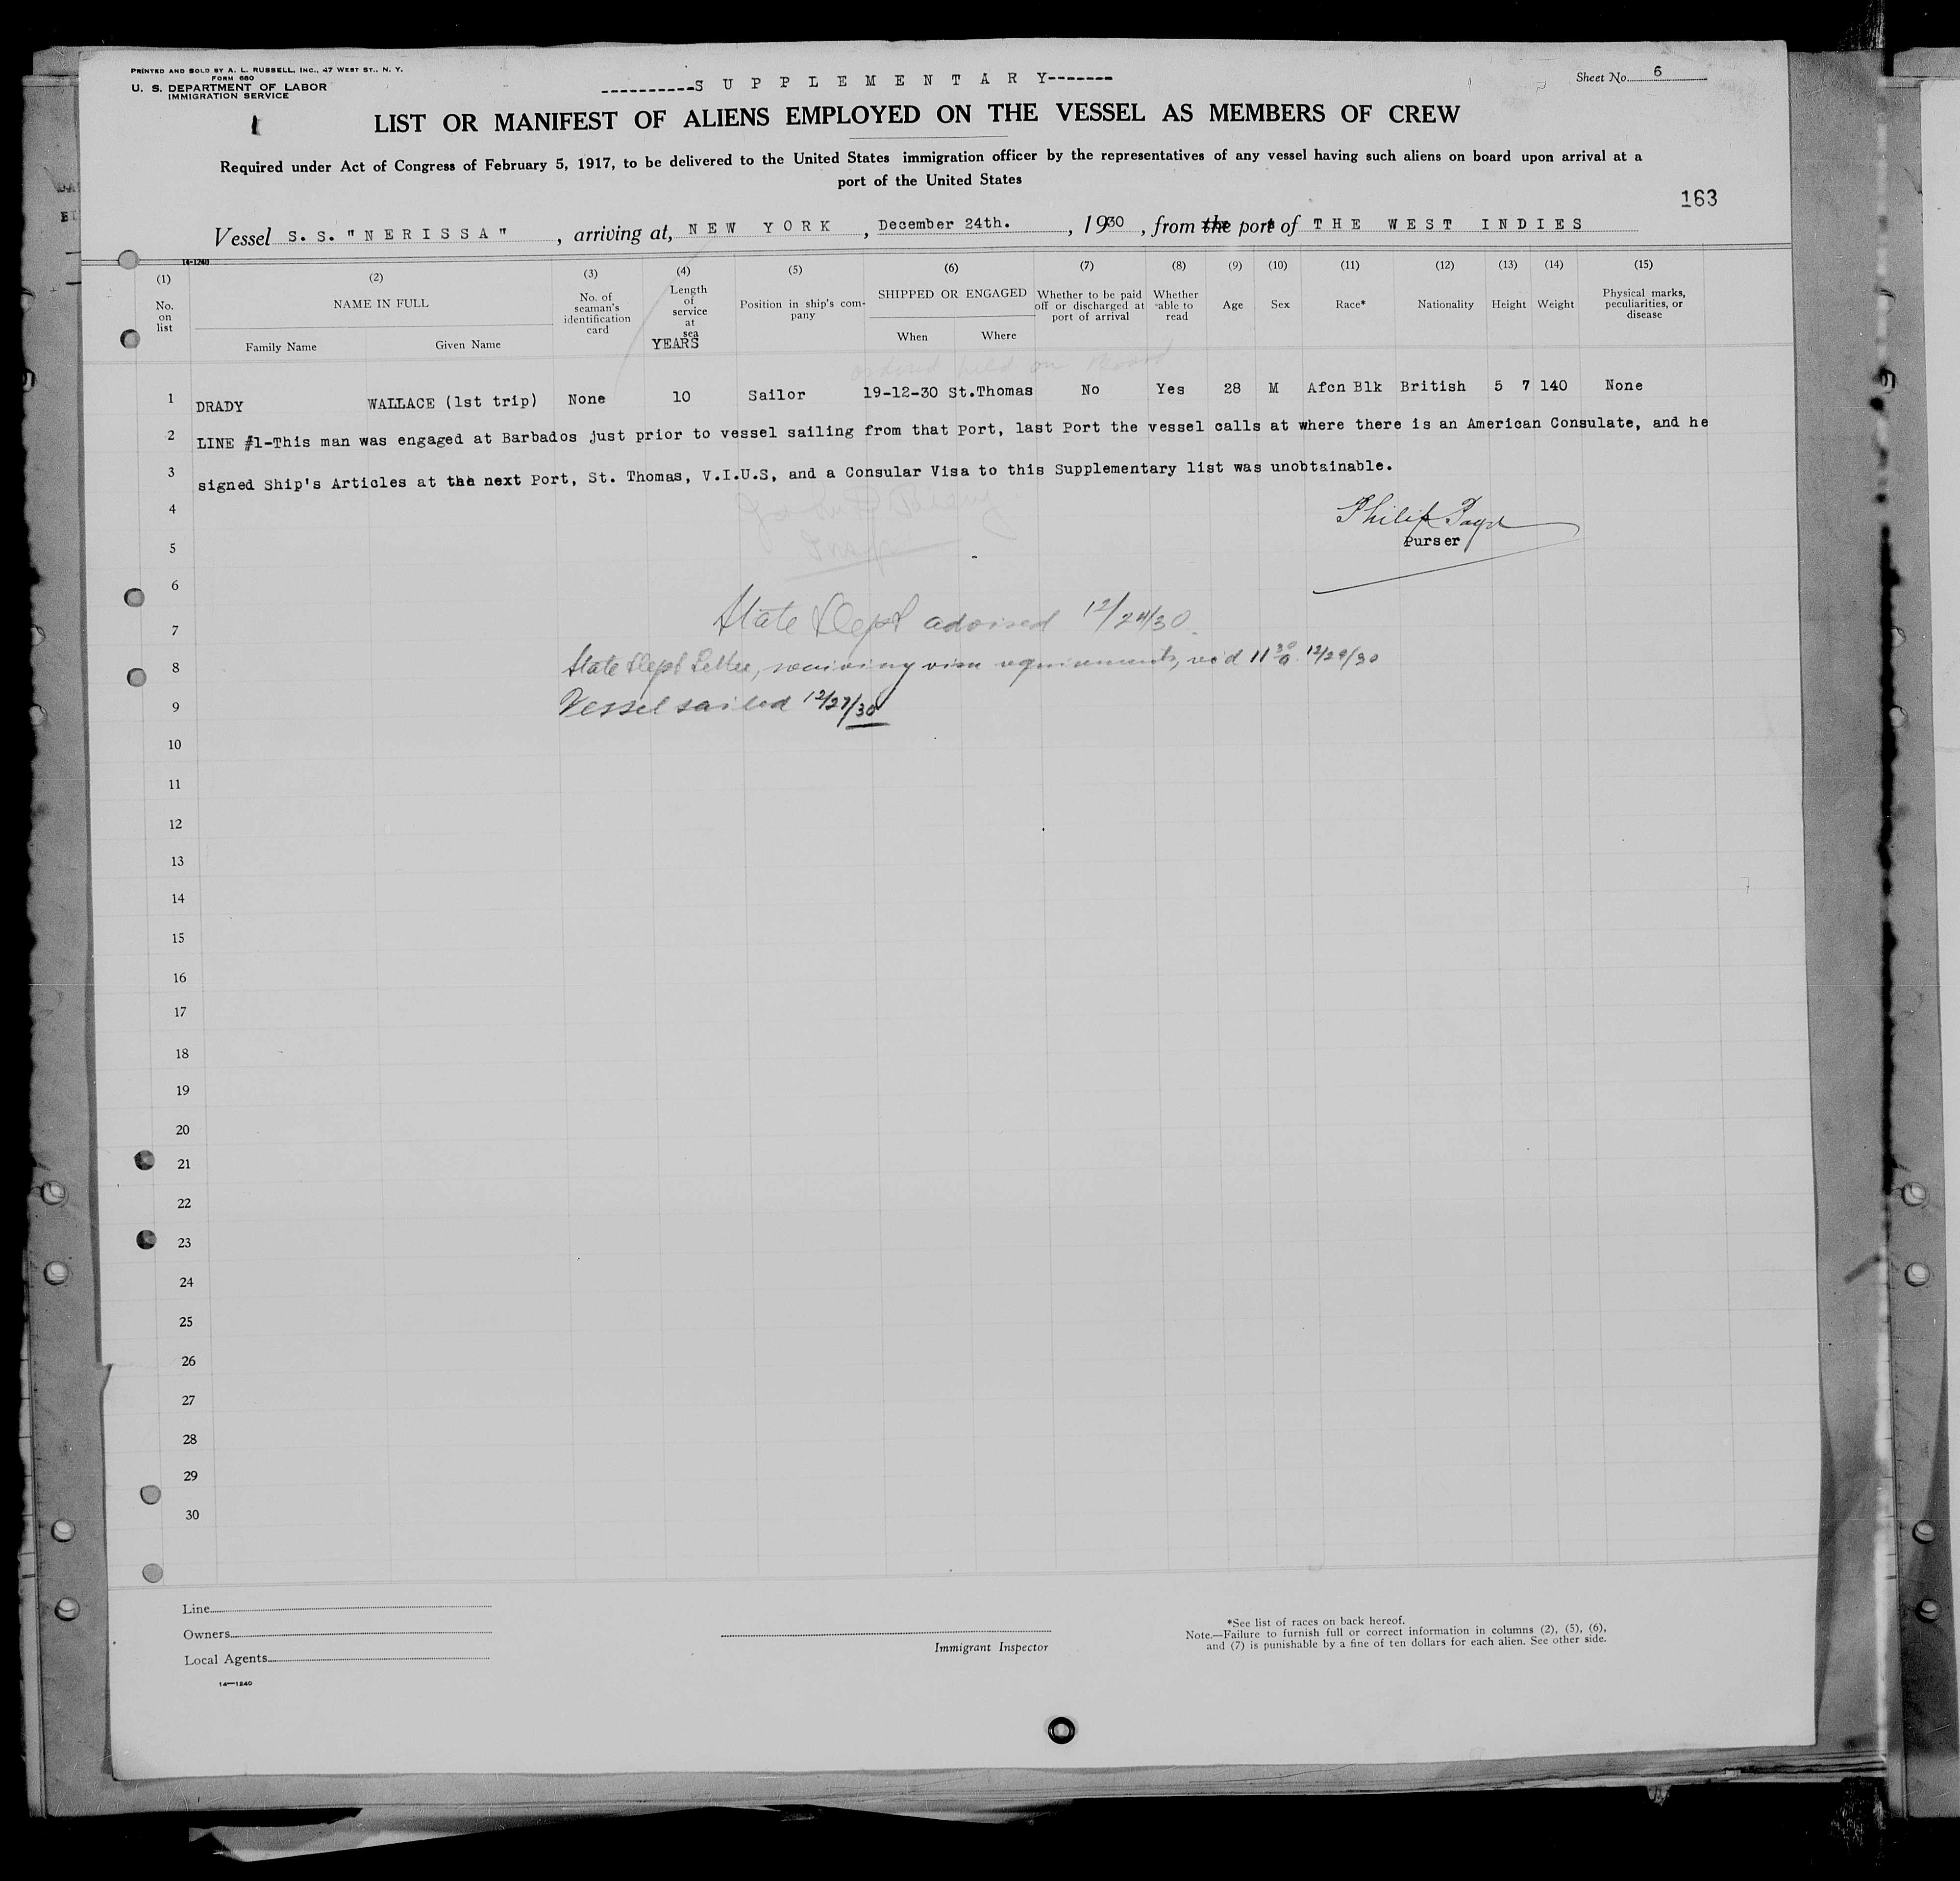 PRINTED AND SOLD BY A. L. RUSSELL, INC., 47 WEST ST., N. Y.
FORM 680
U. S. DEPARTMENT OF LABOR
IMMIGRATION SERVICE
----------S U P P L E M E N T A R Y-------
Sheet No. 6
1
LIST OR MANIFEST OF ALIENS EMPLOYED ON THE VESSEL AS MEMBERS OF CREW
Required under Act of Congress of February 5, 1917, to be delivered to the United States immigration officer by the representatives of any vessel having such aliens on board upon arrival at a
port of the United States
163
Vessel S. S. "NERISSA", arriving at, NEW YORK, December 24th., 1930, from the port of THE WEST INDIES
14-1240
(1) (2) (3) (4) (5) (6) (7) (8) (9) (10) (11) (12) (13) (14) (15)
No. on list
NAME IN FULL
Family Name
Given Name
No. of seaman's identification card
Length of service at sea
YEARS
Position in ship's company
SHIPPED OR ENGAGED
When
Where
Whether to be paid off or discharged at port of arrival
Whether able to read
Age
Sex
Race*
Nationality
Height
Weight
Physical marks, peculiarities, or disease
held on Board
1 DRADY WALLACE (1st trip) None 10 Sailor 19-12-30 St.Thomas No Yes 28 M Afcn Blk British 5 7 140 None
2 LINE #1-This man was engaged at Barbados just prior to vessel sailing from that Port, last Port the vessel calls at where there is an American Consulate, and he
3 signed Ship's Articles at the next Port, St. Thomas, V.I.U.S, and a Consular Visa to this Supplementary list was unobtainable.
4 Philip
5 Purser
6
7 State Dept advised 12/24/30.
8 State Dept Letter, waiving visa requirements, rec'd 11 30 a. 12/29/30
9 Vessel sailed 12/27/30
10
11
12
13
14
15
16
17
18
19
20
21
22
23
24
25
26
27
28
29
30
Line
Owners
Local Agents
14—1240
Immigrant Inspector
*See list of races on back hereof.
Note.—Failure to furnish full or correct information in columns (2), (5), (6),
and (7) is punishable by a fine of ten dollars for each alien. See other side.